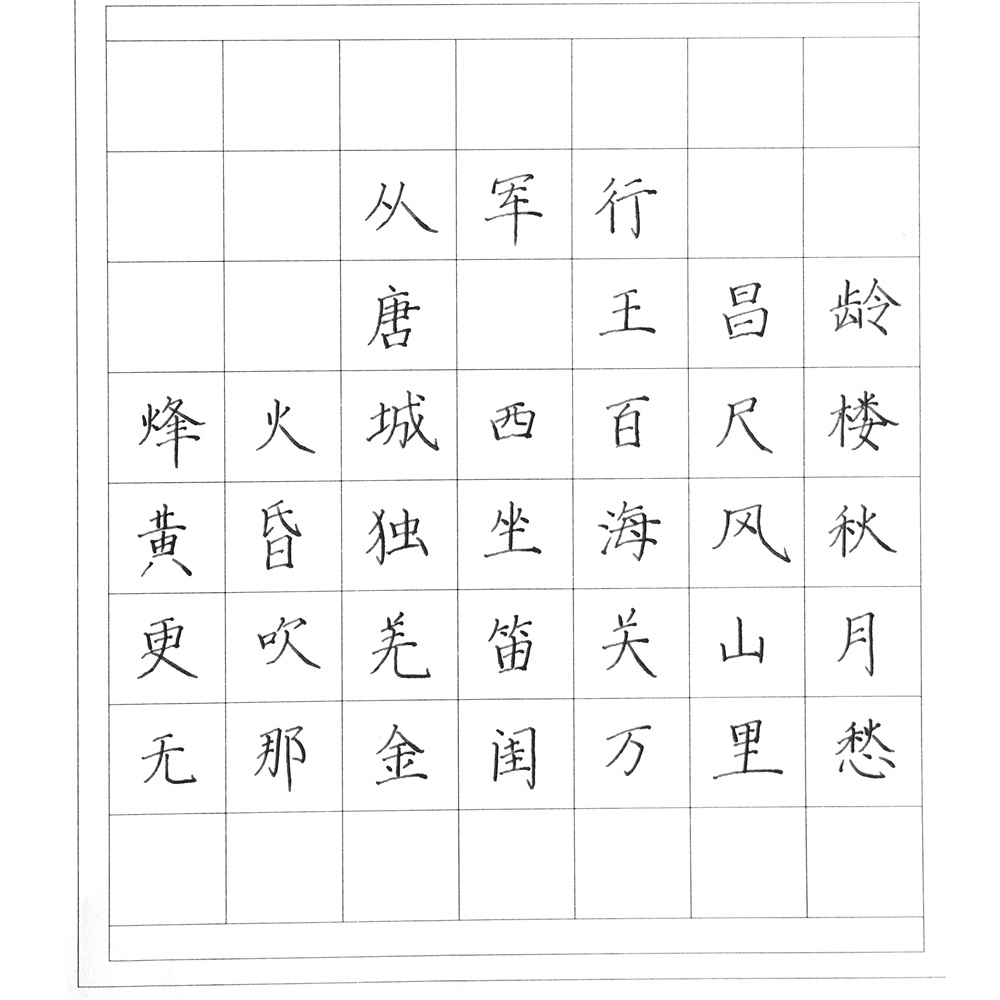 从军行
唐 王昌龄
烽火城西百尺楼
黄昏独坐海风秋
更吹羌笛关山月
无那金闺万里愁